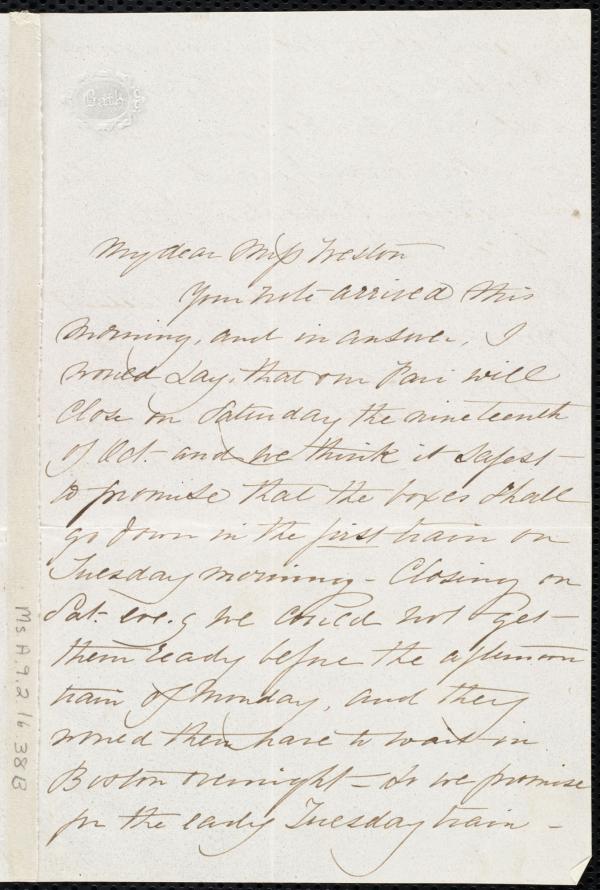 Bath
My dear Miss Weston
Your note arrived this
morning, and in answer, I
would say, that our Fair will
close on Saturday the nineteenth
of Oct. and we think it safest
to promise that the boxes shall
go down in the first train on
Tuesday morning - Closing on
Sat. eve.g we could not get
them ready before the afternoon
train of Monday, and they
would then have to wait in
Boston overnight - So we promise
for the early Tuesday train -
Ms A.9.2 16 38B